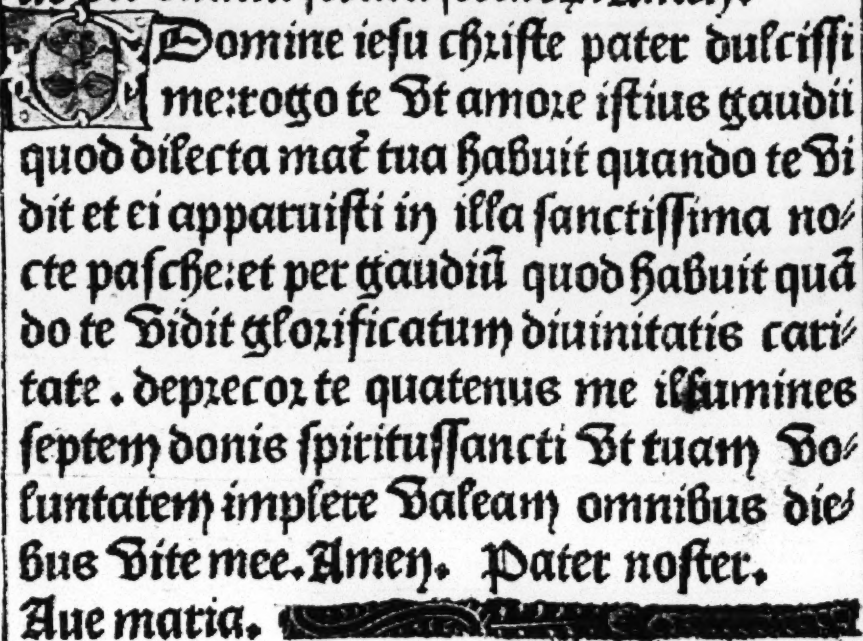 Domine iesu christe pater dulcissi
me: rogo te vt amore istius gaudii
quod dilecta mat̃ tua habuit quando te vi
dit et ei apparuisti in illa sanctissima no⸗
cte pasche: et per gaudiũ quod habuit quã
do te vidit glorificatum diuinitatis cari⸗
tate . deprecor te quatenus me illumines
septem donis spiritussancti vt tuam vo⸗
luntatem implere valeam omnibus die⸗
bus vite mee. Amen. Pater noster.
Aue maria.